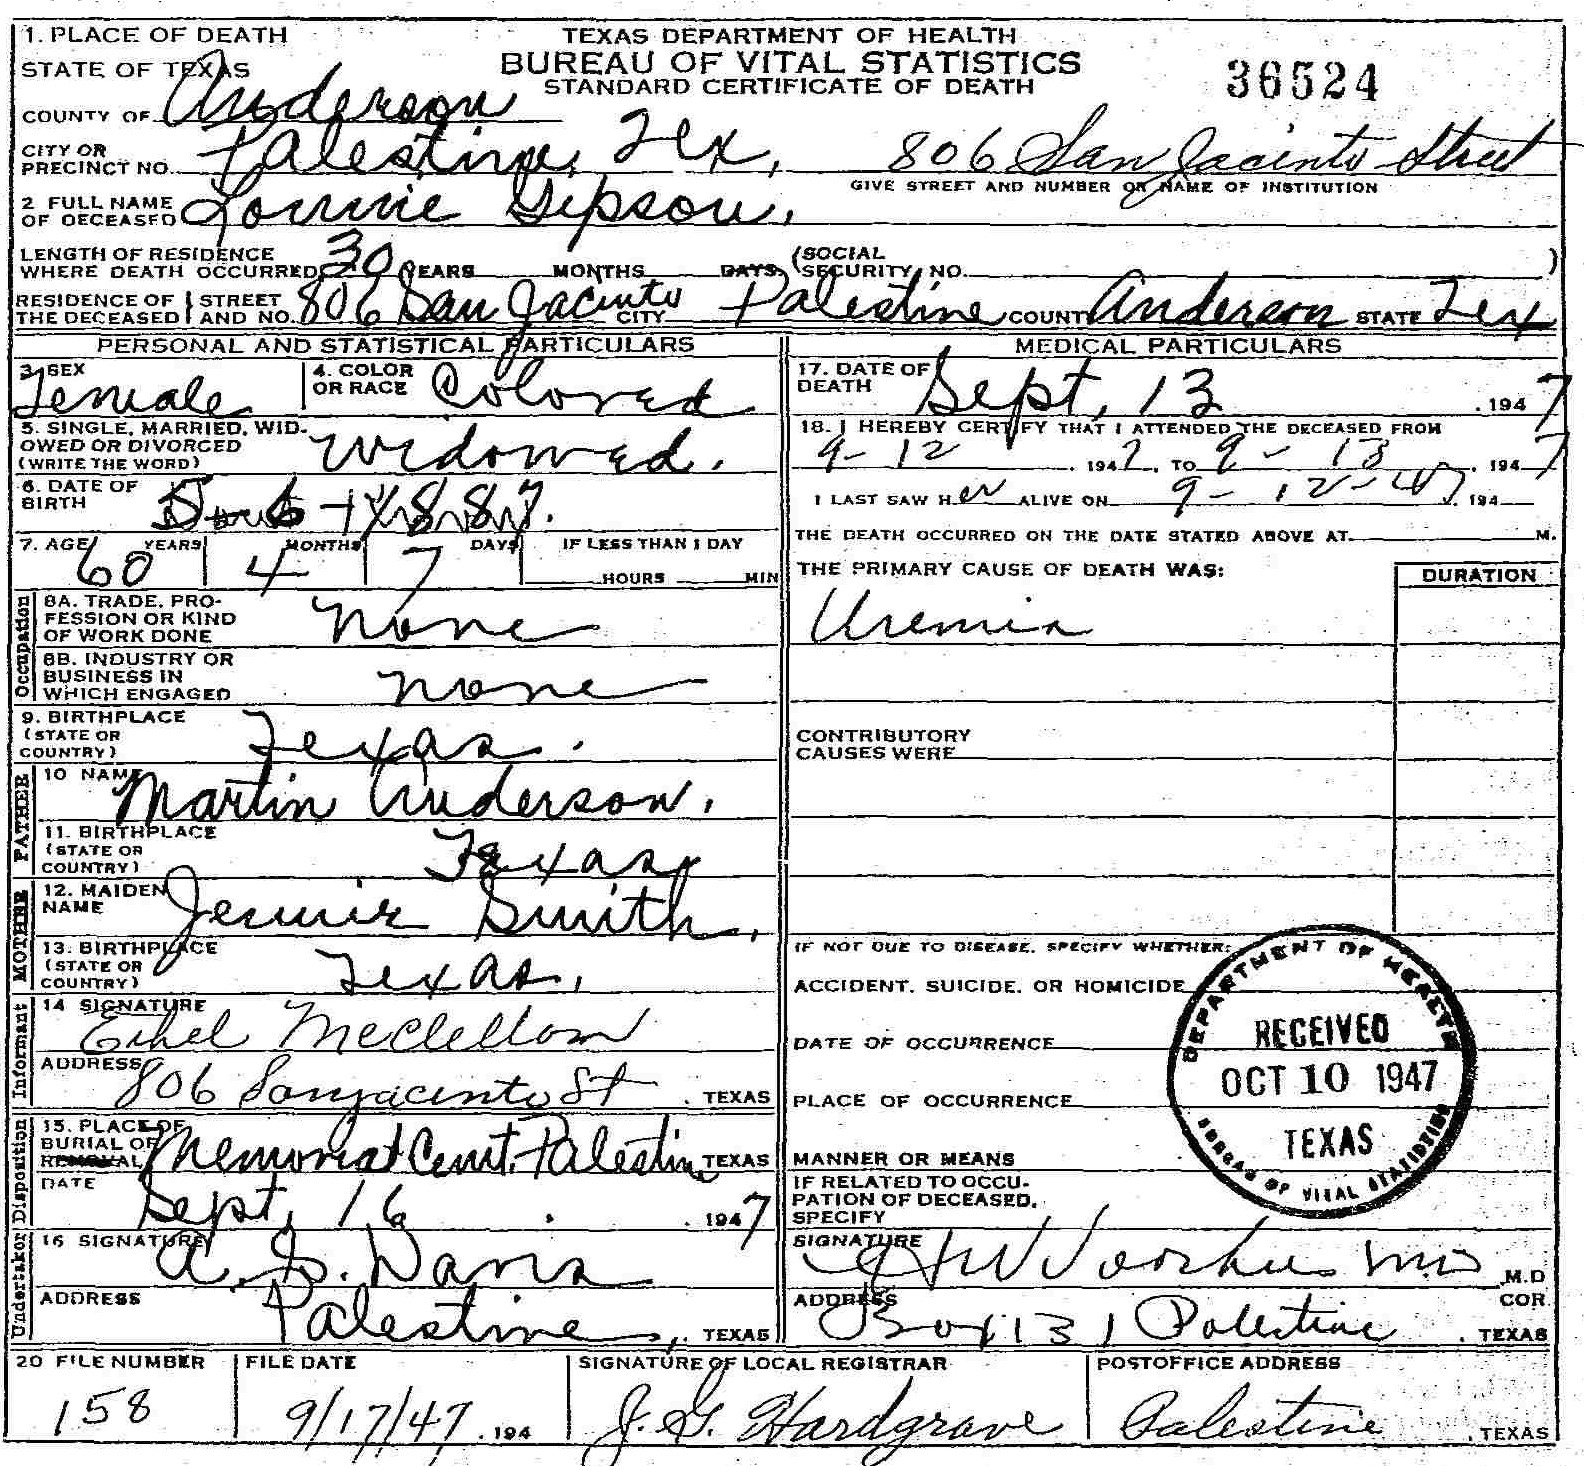 1. PLACE OF DEATH
TEXAS DEPARTMENT OF HEALTH
BUREAU OF VITAL STATISTICS
STANDARD CERTIFICATE OF DEATH
36524
STATE OF TEXAS
COUNTY OF Anderson
CITY OR PRECINCT NO. Palestine, Tex, 806 San Jacinto Street
GIVE STREET AND NUMBER OR NAME OF INSTITUTION
2 FULL NAME OF DECEASED Lonnie Gipson,
LENGTH OF RESIDENCE WHERE DEATH OCCURRED 30 YEARS MONTHS DAYS (SOCIAL SECURITY NO. )
RESIDENCE OF THE DECEASED STREET AND NO. 806 San Jacinto CITY Palestine COUNTY Anderson STATE Tex
PERSONAL AND STATISTICAL PARTICULARS
3. SEX Female
4. COLOR OR RACE Colored
5. SINGLE, MARRIED, WIDOWED OR DIVORCED (WRITE THE WORD) Widowed.
6. DATE OF BIRTH 5-6-1887.
7. AGE 60 YEARS 4 MONTHS 7 DAYS IF LESS THAN 1 DAY HOURS MIN
Occupation
8A. TRADE, PROFESSION OR KIND OF WORK DONE none
8B. INDUSTRY OR BUSINESS IN WHICH ENGAGED none
9. BIRTHPLACE (STATE OR COUNTRY) Texas.
FATHER
10 NAME Martin Anderson.
11. BIRTHPLACE (STATE OR COUNTRY) Texas
MOTHER
12. MAIDEN NAME Jennie Smith,
13. BIRTHPLACE (STATE OR COUNTRY) Texas,
Informant
14 SIGNATURE Ethel McClellom
ADDRESS 806 Sanjacinto St. TEXAS
Disposition
15. PLACE OF BURIAL OR REMOVAL Memorial Cemt. Palestine TEXAS
DATE Sept, 16. 1947
Undertaker
16 SIGNATURE A. S. Davis
ADDRESS Palestine, TEXAS
MEDICAL PARTICULARS
17. DATE OF DEATH Sept, 13 .1947
18. I HEREBY CERTIFY THAT I ATTENDED THE DECEASED FROM
9-12 .1947, TO 9-13 .1947
I LAST SAW HER ALIVE ON 9-12-47 .194
THE DEATH OCCURRED ON THE DATE STATED ABOVE AT M.
THE PRIMARY CAUSE OF DEATH WAS: DURATION
Uremia
CONTRIBUTORY CAUSES WERE
IF NOT DUE TO DISEASE, SPECIFY WHETHER:
ACCIDENT, SUICIDE, OR HOMICIDE
DATE OF OCCURRENCE
PLACE OF OCCURRENCE
MANNER OR MEANS
IF RELATED TO OCCUPATION OF DECEASED, SPECIFY
DEPARTMENT OF HEALTH
RECEIVED
OCT 10 1947
TEXAS
BUREAU OF VITAL STATISTICS
SIGNATURE Voorhees MD M.D
ADDRESS Box 131 Palestine COR. TEXAS
20 FILE NUMBER 158
FILE DATE 9/17/47 .194
SIGNATURE OF LOCAL REGISTRAR J. G. Hardgrave
POSTOFFICE ADDRESS Palestine, TEXAS